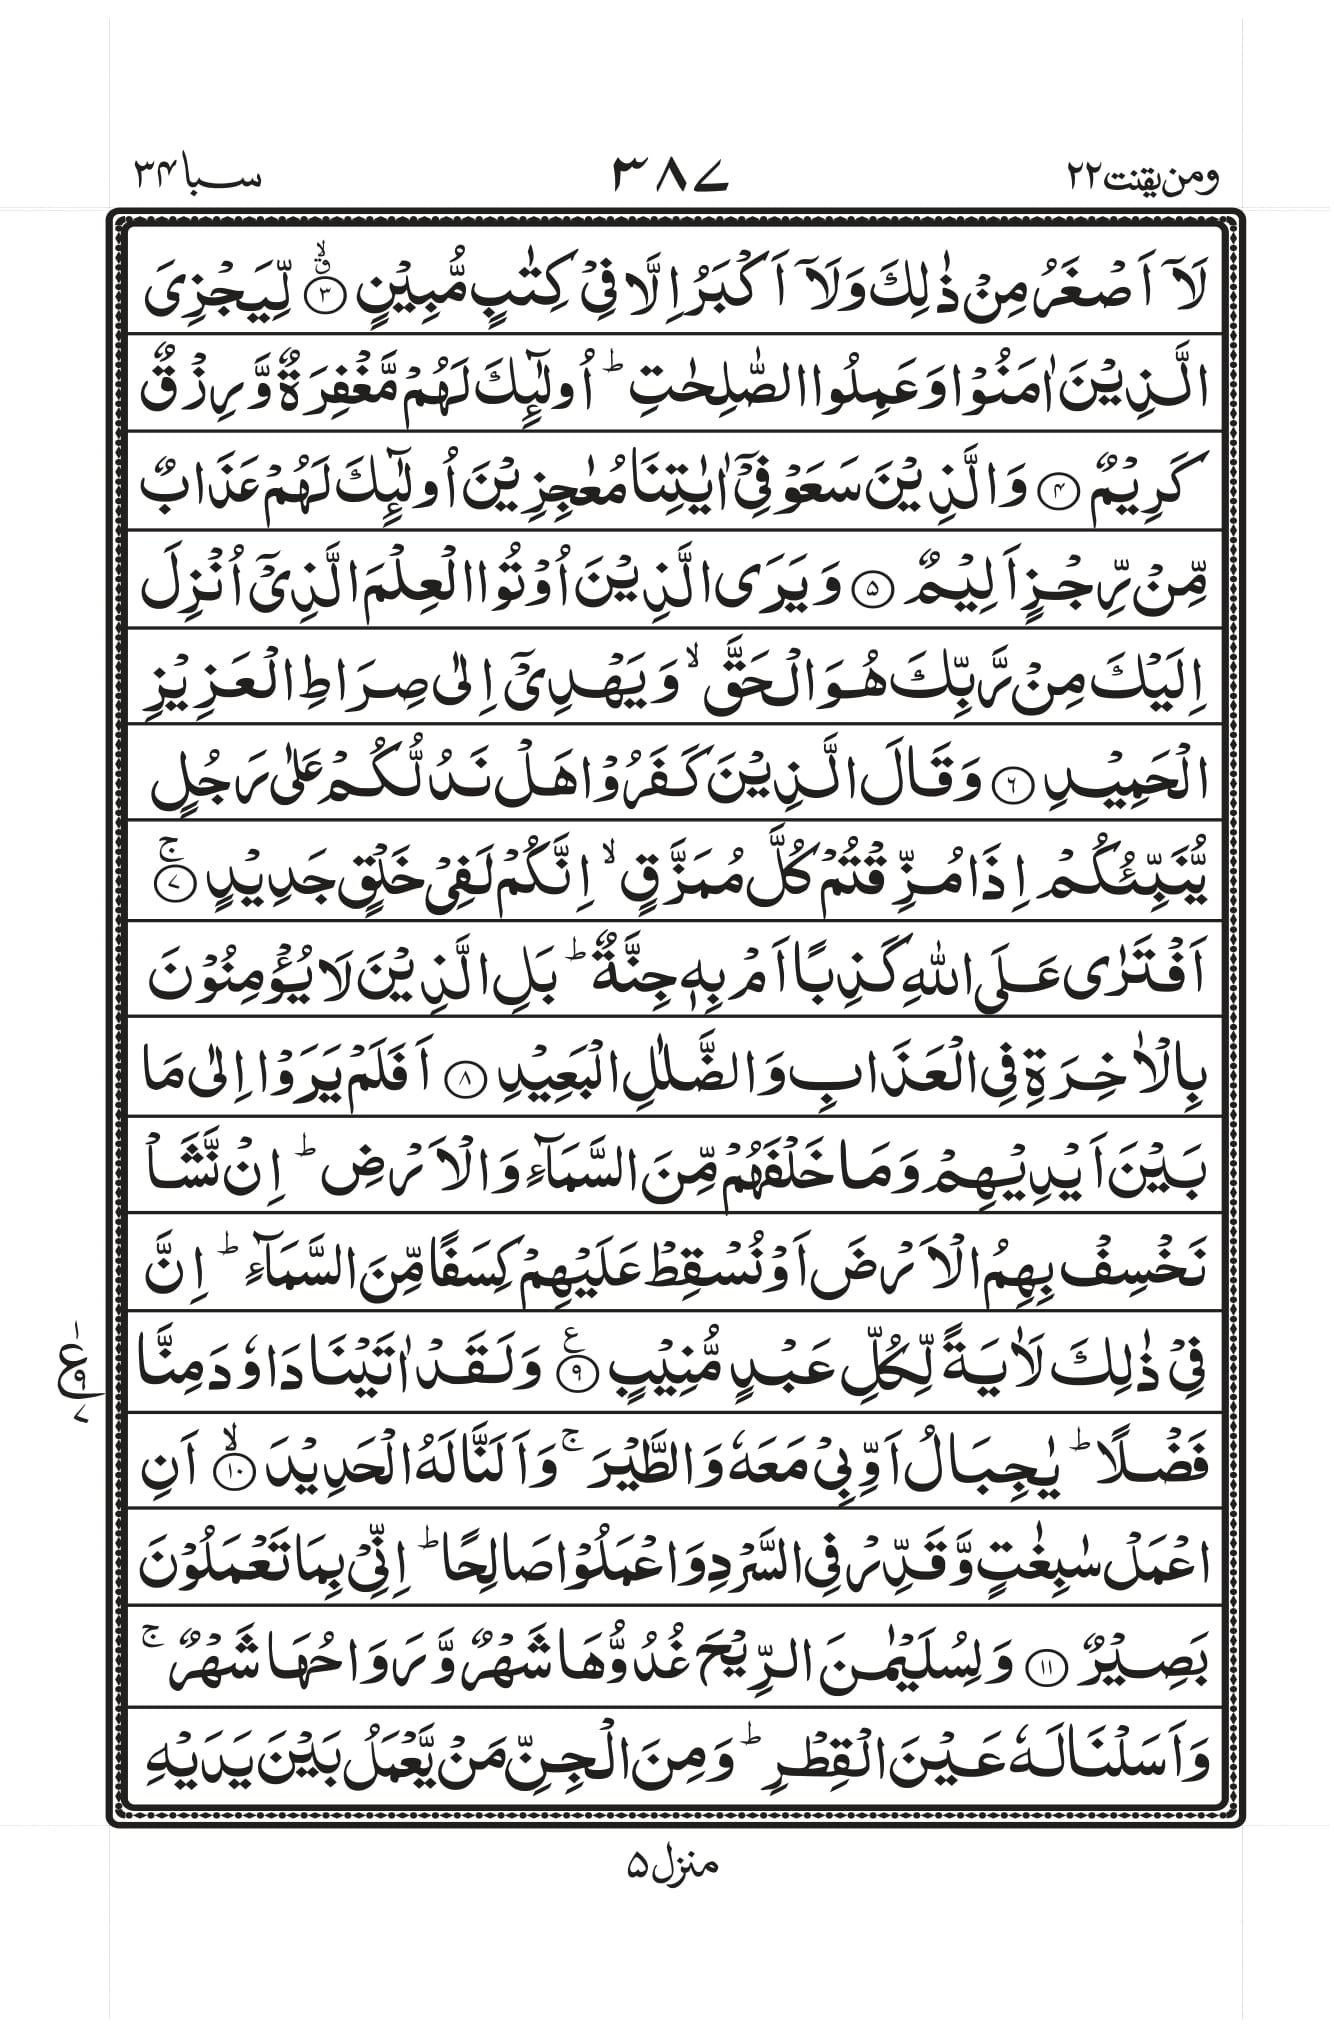 ومن یقنت ۲۲
۳۸۷
سبا ۳۴
لَاۤ اَصْغَرُ مِنْ ذٰلِكَ وَلَاۤ اَكْبَرُ اِلَّا فِیْ كِتٰبٍ مُّبِیْنٍ ۙ۳ لِّیَجْزِیَ
الَّذِیْنَ اٰمَنُوْا وَعَمِلُوا الصّٰلِحٰتِ ؕ اُولٰٓىِٕكَ لَهُمْ مَّغْفِرَةٌ وَّرِزْقٌ
كَرِیْمٌ ۴ وَالَّذِیْنَ سَعَوْ فِیْۤ اٰیٰتِنَا مُعٰجِزِیْنَ اُولٰٓىِٕكَ لَهُمْ عَذَابٌ
مِّنْ رِّجْزٍ اَلِیْمٌ ۵ وَیَرَی الَّذِیْنَ اُوْتُوا الْعِلْمَ الَّذِیْۤ اُنْزِلَ
اِلَیْكَ مِنْ رَّبِّكَ هُوَ الْحَقَّ ۙ وَیَهْدِیْۤ اِلٰی صِرَاطِ الْعَزِیْزِ
الْحَمِیْدِ ۶ وَقَالَ الَّذِیْنَ كَفَرُوْا هَلْ نَدُلُّكُمْ عَلٰی رَجُلٍ
یُّنَبِّئُكُمْ اِذَا مُزِّقْتُمْ كُلَّ مُمَزَّقٍ ۙ اِنَّكُمْ لَفِیْ خَلْقٍ جَدِیْدٍ ۚ۷
اَفْتَرٰی عَلَی اللّٰهِ كَذِبًا اَمْ بِهٖ جِنَّةٌ ؕ بَلِ الَّذِیْنَ لَا یُؤْمِنُوْنَ
بِالْاٰخِرَةِ فِی الْعَذَابِ وَالضَّلٰلِ الْبَعِیْدِ ۸ اَفَلَمْ یَرَوْا اِلٰی مَا
بَیْنَ اَیْدِیْهِمْ وَمَا خَلْفَهُمْ مِّنَ السَّمَآءِ وَالْاَرْضِ ؕ اِنْ نَّشَاْ
نَخْسِفْ بِهِمُ الْاَرْضَ اَوْ نُسْقِطْ عَلَیْهِمْ كِسَفًا مِّنَ السَّمَآءِ ؕ اِنَّ
فِیْ ذٰلِكَ لَاٰیَةً لِّكُلِّ عَبْدٍ مُّنِیْبٍ ۹ع وَلَقَدْ اٰتَیْنَا دَاوٗدَ مِنَّا
ع
۱
۹
۷
فَضْلًا ؕ یٰجِبَالُ اَوِّبِیْ مَعَهٗ وَالطَّیْرَ ۚ وَاَلَنَّا لَهُ الْحَدِیْدَ ۙ۱۰ اَنِ
اعْمَلْ سٰبِغٰتٍ وَّقَدِّرْ فِی السَّرْدِ وَاعْمَلُوْا صَالِحًا ؕ اِنِّیْ بِمَا تَعْمَلُوْنَ
بَصِیْرٌ ۱۱ وَلِسُلَیْمٰنَ الرِّیْحَ غُدُوُّهَا شَهْرٌ وَّرَوَاحُهَا شَهْرٌ ۚ
وَاَسَلْنَا لَهٗ عَیْنَ الْقِطْرِ ؕ وَمِنَ الْجِنِّ مَنْ یَّعْمَلُ بَیْنَ یَدَیْهِ
منزل ۵